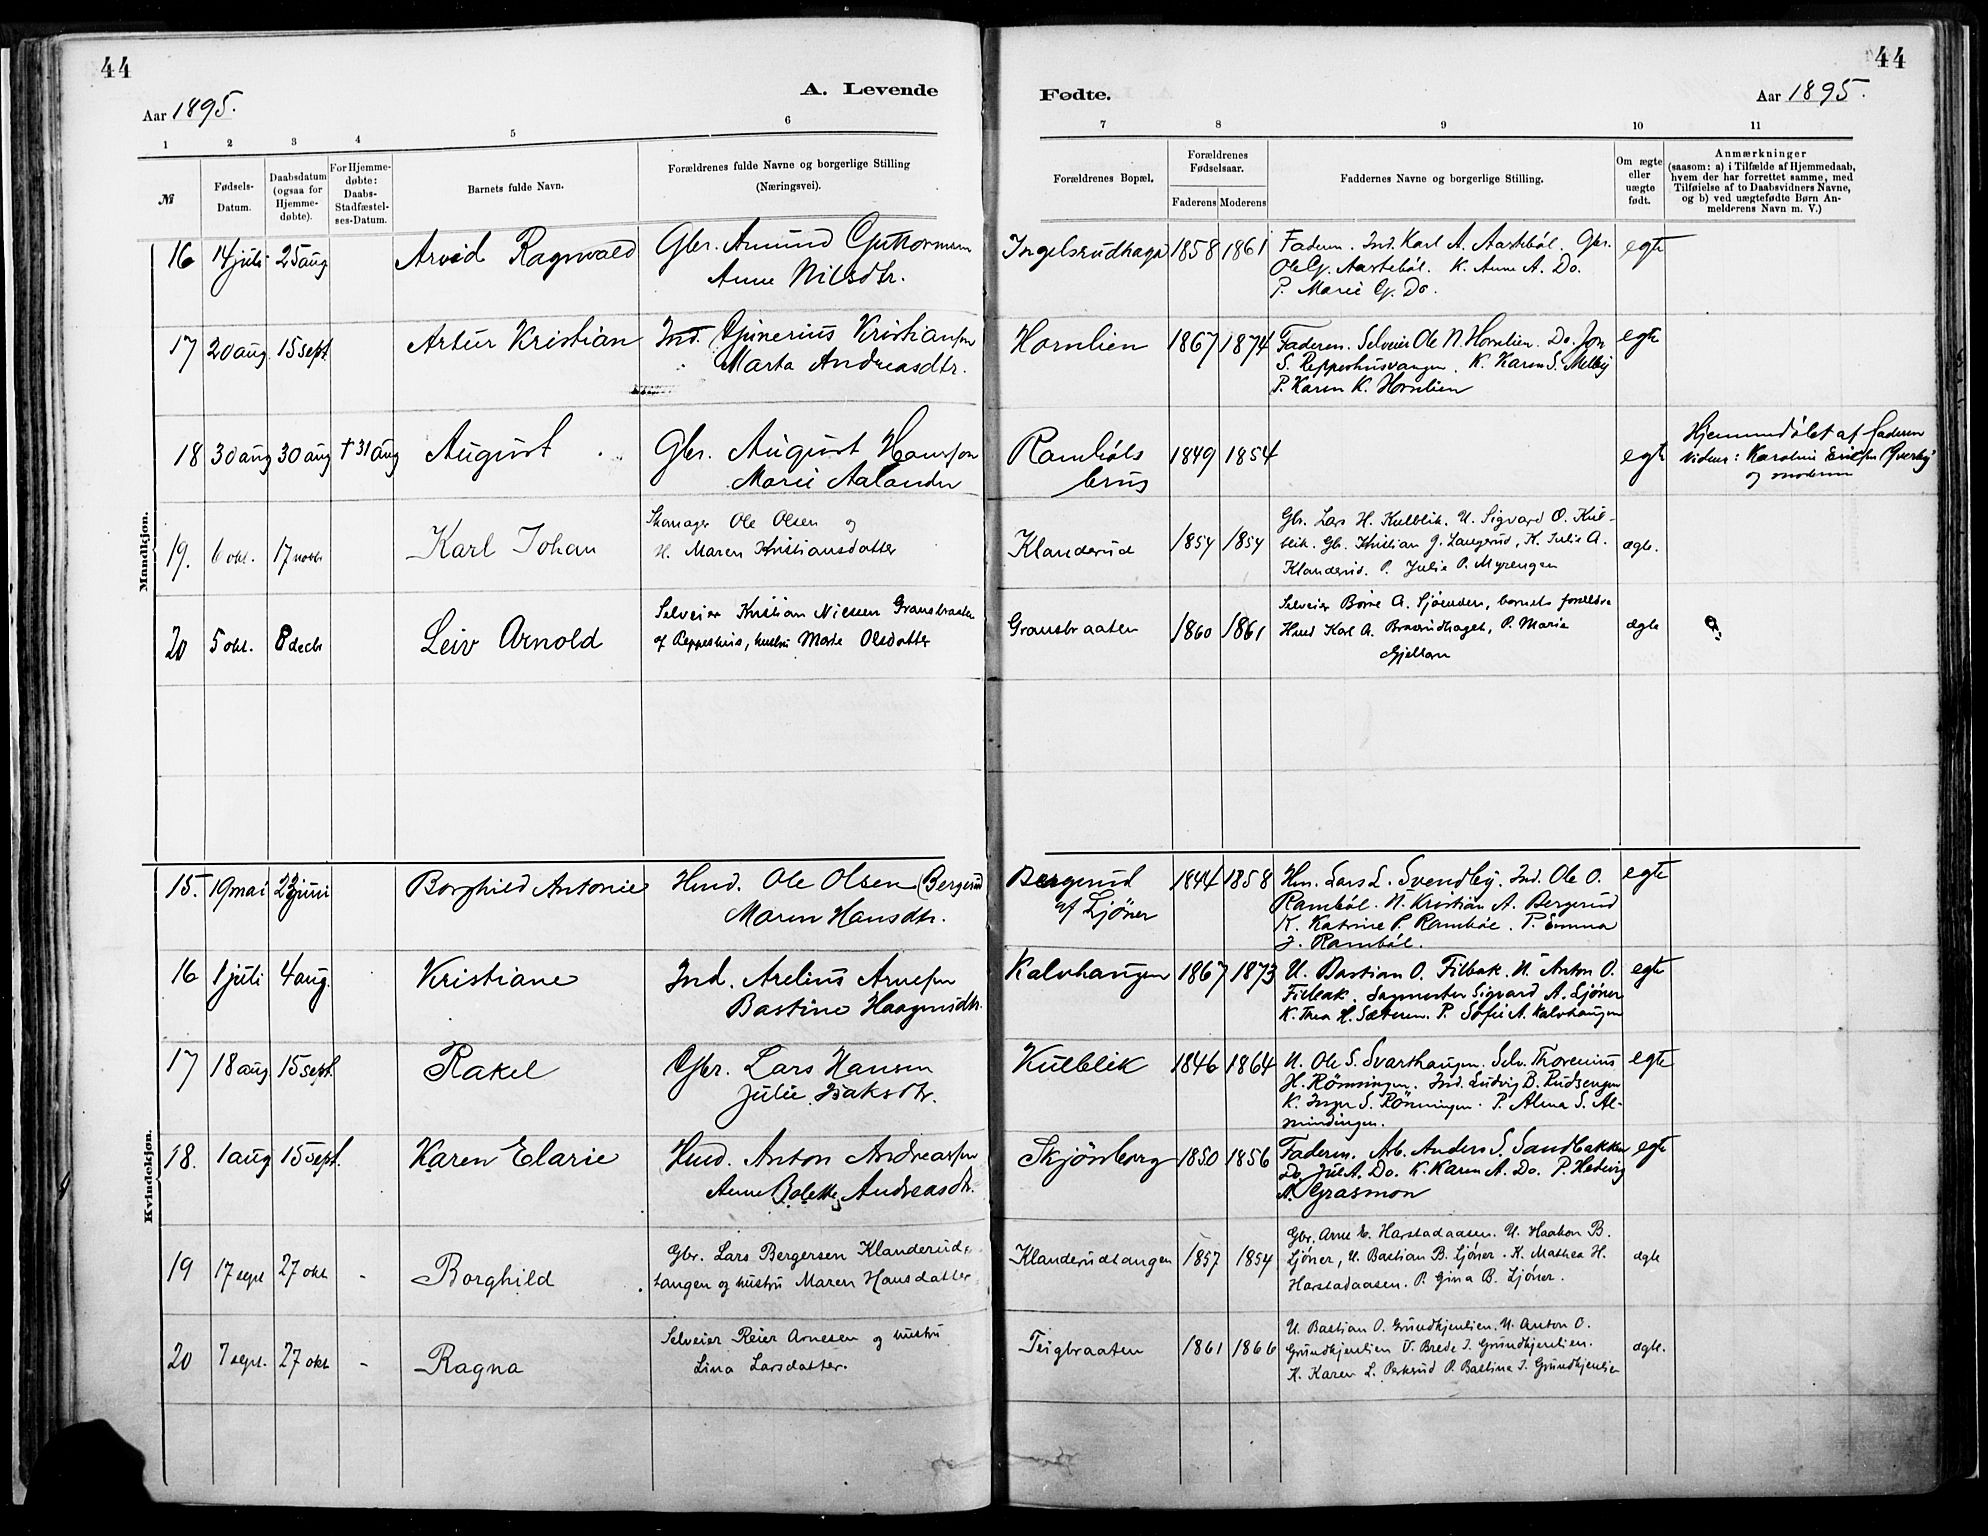 44
44
Aar 1895.
A. Levende
Fødte.
Aar 1895.
1 2 3 4 5 6 7 8 9 10 11
№
Fødsels-
Datum.
Daabsdatum
(ogsaa for
Hjemme-
døbte).
For Hjemme-
døbte:
Daabs-
Stadfæstel-
ses-Datum.
Barnets fulde Navn.
Forældrenes fulde Navne og borgerlige Stilling
(Næringsvei).
Forældrenes Bopæl.
Forældrenes
Fødselsaar.
Faderens Moderens
Faddernes Navne og borgerlige Stilling.
Om ægte
eller
uægte
født.
Anmærkninger
(saasom: a) i Tilfælde af Hjemmedaab,
hvem der har forrettet samme, med
Tilføielse af to Daabsvidners Navne,
og b) ved uægtefødte Børn An-
melderens Navn m. V.)
Mandkjøn.
16 14 juli 25 aug Arvid Ragnvald Gbr. Amund Guttormsen
Anne Nilsdtr.
Ingelsrudhaga 1858 1861 Faderen. Ind. Karl A. Aastebøl. Gbr.
Ole G. Aastebøl. K. Anne A. Do.
P. Marie G. Do.
egte
17 20 aug. 15 sept. Artur Kristian Ind. Gunerius Kristiansen
Marta Andreasdtr.
Hornlien 1867 1874 Faderen. Selveier Ole N. Hornlien. Do. Jon
S. Reppeshusvangen. K. Karen S. Melby
P. Karen K. Hornlien
egte
18 30 aug 30 aug † 31 aug August Gbr. August Hansen
Marie Aalander
Rambøls
brus 1849 1854 egte
Hjemmedøbt af faderen
Vidner: Karoline Eriksen Gverby
og moderen
19. 6 okt. 17 novbr Karl Johan Skomager Ole Olsen og
H. Maren Kristiansdatter
Klanderud 1854 1854 Gbr. Lars H. Kulblik. U. Sigvard O. Kul-
blik. Gbr. Kristian G. Langerud, K. Julie A.
Klanderud. P. Julie P. Myrengen
ægte.
20 5 okt. 8 decbr Leiv Arnold Selveier Kristian Nilssen Gransbraaten
af Reppeshus, hustru Marte Olsdatter
Gransbraaten 1860 1861 Selveier Børre A. Sjøenden, barnets forældre
Hmd Karl A. Braarudhaget, P. Marie
Gjellan
ægte
Kvindekjøn.
15. 19 mai 23 juni Borghild Antonie Hmd. Ole Olsen (Bergerud
Maren Hansdtr.
Bergerud
af Ljøner 1844 1858 Hm. Lars L. Svendby. Ind. Ole O.
Rambøl. U. Kristian A. Bergerud
K. Katrine P. Rambøl. P. Emma
J. Rambøl.
egte
16 1 juli 4 aug. Kristiane Ind. Arelius Arnesen
Bastine Haagensdtr.
Kalvhaugen 1867 1873 U. Bastian O. Filbak. U. Anton O.
Filbak. Sagmester Sigvard A. Ljøner
K. Thea H. Sæteren. P. Sofie A. Kalvhaugen
egte
17 18 aug 15 sept. Rakel Gbr. Lars Hansen
Julie Isaksdtr.
Kulblik 1846 1864 U. Ole S. Svarthaugen. Selv. Thorenius
H. Rønningen. Ind. Ludvig B. Rudsengen
K. Inger S. Rønningen. P. Alma S. Al-
mindingen.
egte
18. 1 aug 15 sept. Karen Elarie Hmd. Anton Andreassen
Anne Bolette Andreasdtr.
Skjønborg 1850 1856 Faderen. Arb. Anders S. Sandbakken
Do Jul A. Do. K. Karen A. Do. P. Hedvig
A. Grasmon
egte
19 17 sept 27 okt - Borghild Gbr. Lars Bergersen Klanderud-
tangen og hustru Maren Hansdatter
Klanderudtangen 1857 1854 Gbr. Arne E. Harstadaasen. U. Haakon B.
Ljøner, U. Bastian B. Ljøner. K. Mathea H.
Harstadaasen. P. Gina B. Ljøner.
ægte
20 7 sept. 27 okt - Ragna Selveier Reier Arnesen og hustru
Lina Larsdatter.
Teigbraaten 1861 1866 U. Bastian O. Grundkjenlien. U. Anton O.
Grundkjenlien U. Brede J. Grundkjenlien.
K. Karen L. Parkrud P. Baltina J. Grundkjenlien
ægte.